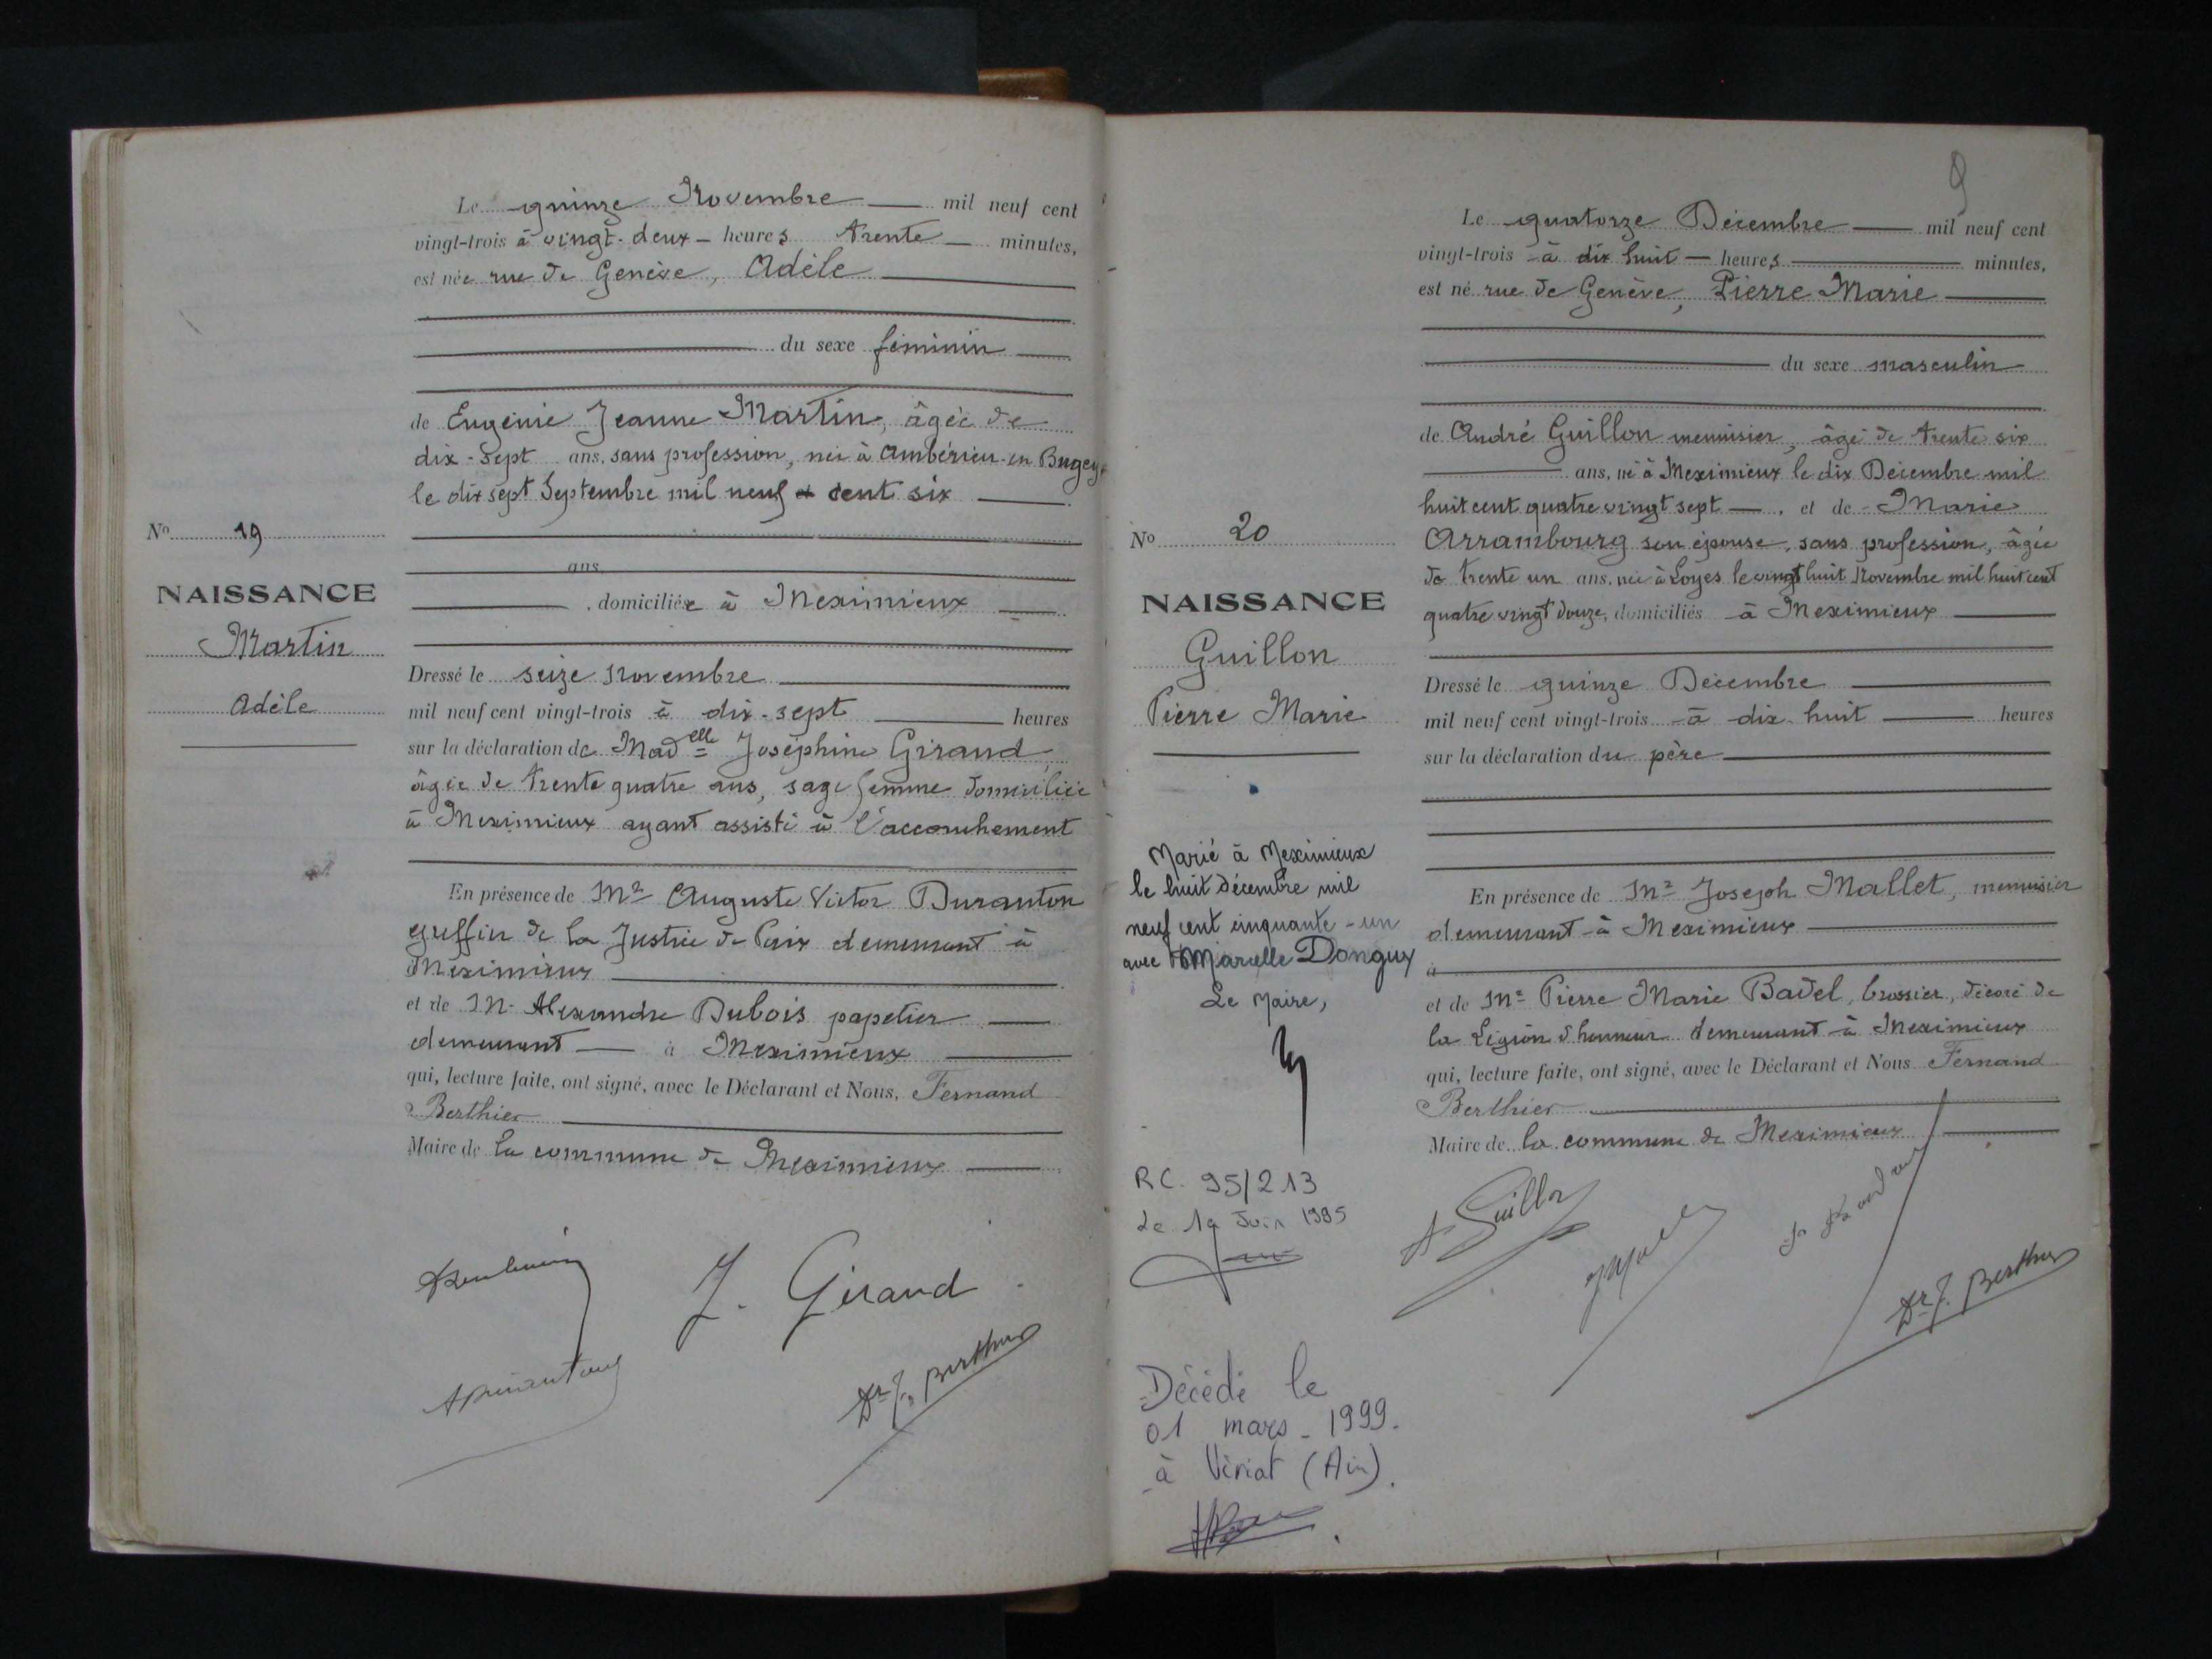 Le quinze Novembre mil neuf cent
vingt-trois à vingt-deux heures trente minutes,
est née rue de Genève, Adèle
du sexe féminin
de Eugénie Jeanne Martin, âgée de
dix-sept ans, sans profession, née à Ambérieu-en-Bugey
le dix sept Septembre mil neuf cent six
ans,
, domiciliée à Meximieux
No 19
NAISSANCE
Martin
Adèle
Dressé le seize Novembre
mil neuf cent vingt-trois à dix-sept heures
sur la déclaration de Mad elle Joséphine Giraud,
âgée de trente quatre ans, sage femme domiciliée
à Meximieux ayant assisté à l'accouchement
En présence de Mr Auguste Victor Duranton
greffier de la Justice de Paix demeurant à
Meximieux
et de M. Alexandre Dubois papetier
demeurant à Meximieux
qui, lecture faite, ont signé, avec le Déclarant et Nous, Fernand
Berthier
Maire de la commune de Meximieux
J. Giraud
ADuranton
Dr F. Berthier
9
Le quatorze Décembre mil neuf cent
vingt-trois à dix huit heures minutes,
est né rue de Genève, Pierre Marie
du sexe masculin
de André Guillon menuisier, âgé de trente six
ans, né à Meximieux le dix Décembre mil
huit cent quatre vingt sept, et de Marie
Arrambourg son épouse, sans profession, âgée
de trente un ans, née à Loyes le vingt huit Novembre mil huit cent
quatre vingt douze, domiciliés à Meximieux
No 20
NAISSANCE
Guillon
Pierre Marie
Dressé le quinze Décembre
mil neuf cent vingt-trois à dix-huit heures
sur la déclaration du père
En présence de Mr Joseph Mallet, menuisier
demeurant à Meximieux
à
et de Mr Pierre Marie Badel, brossier, décoré de
la Légion d'honneur demeurant à Meximieux
qui, lecture faite, ont signé, avec le Déclarant et Nous Fernand
Berthier
Maire de la commune de Meximieux
A Guillon
Dr F. Berthier
Marié à Meximieux
le huit Décembre mil
neuf cent cinquante-un
avec Marcelle Donguy
Le Maire,
RC. 95/213
Le 19 Juin 1995
Décédé le
01 mars 1999.
à Viriat (Ain).